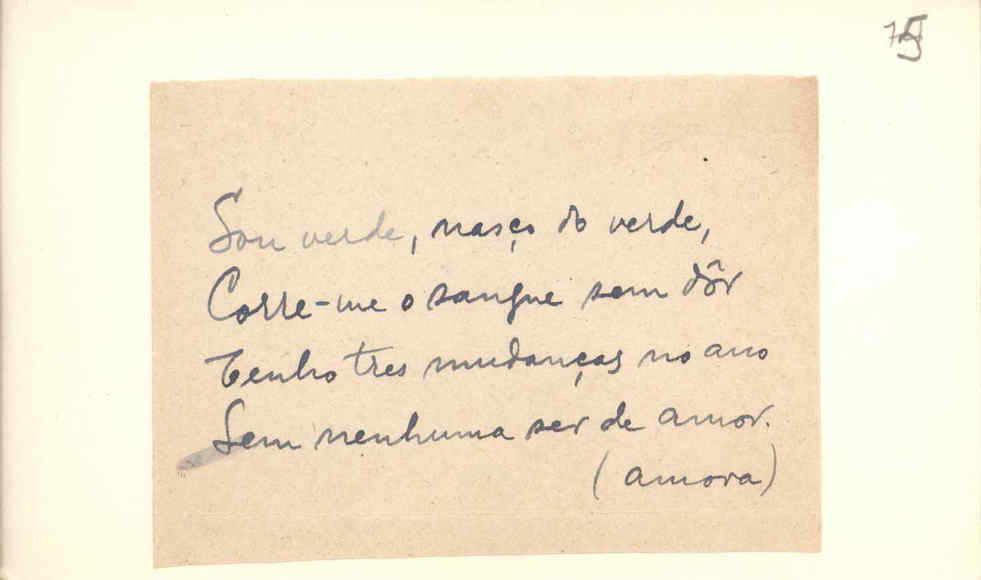 Sou verde, nasço do verde,
Corre-me o sangue sem dôr
Tenho tres mudanças no ano
Sem nenhuma ser de amor.
(amora)